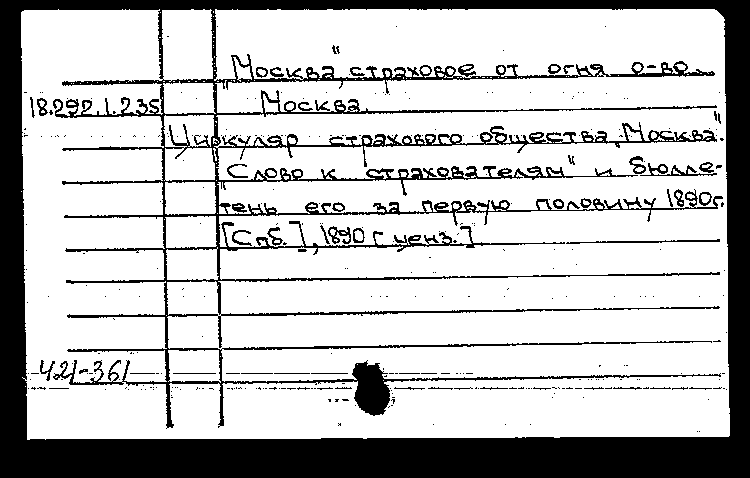 „Москва", страховое от огня о-во.
18.292.1.235 Москва.
Циркуляр страхового общества „Москва".
„Слово к страхователям" и бюлле-
тень его за первую половину 1890г.
[Спб.], 1890 [ценз.]
421-361